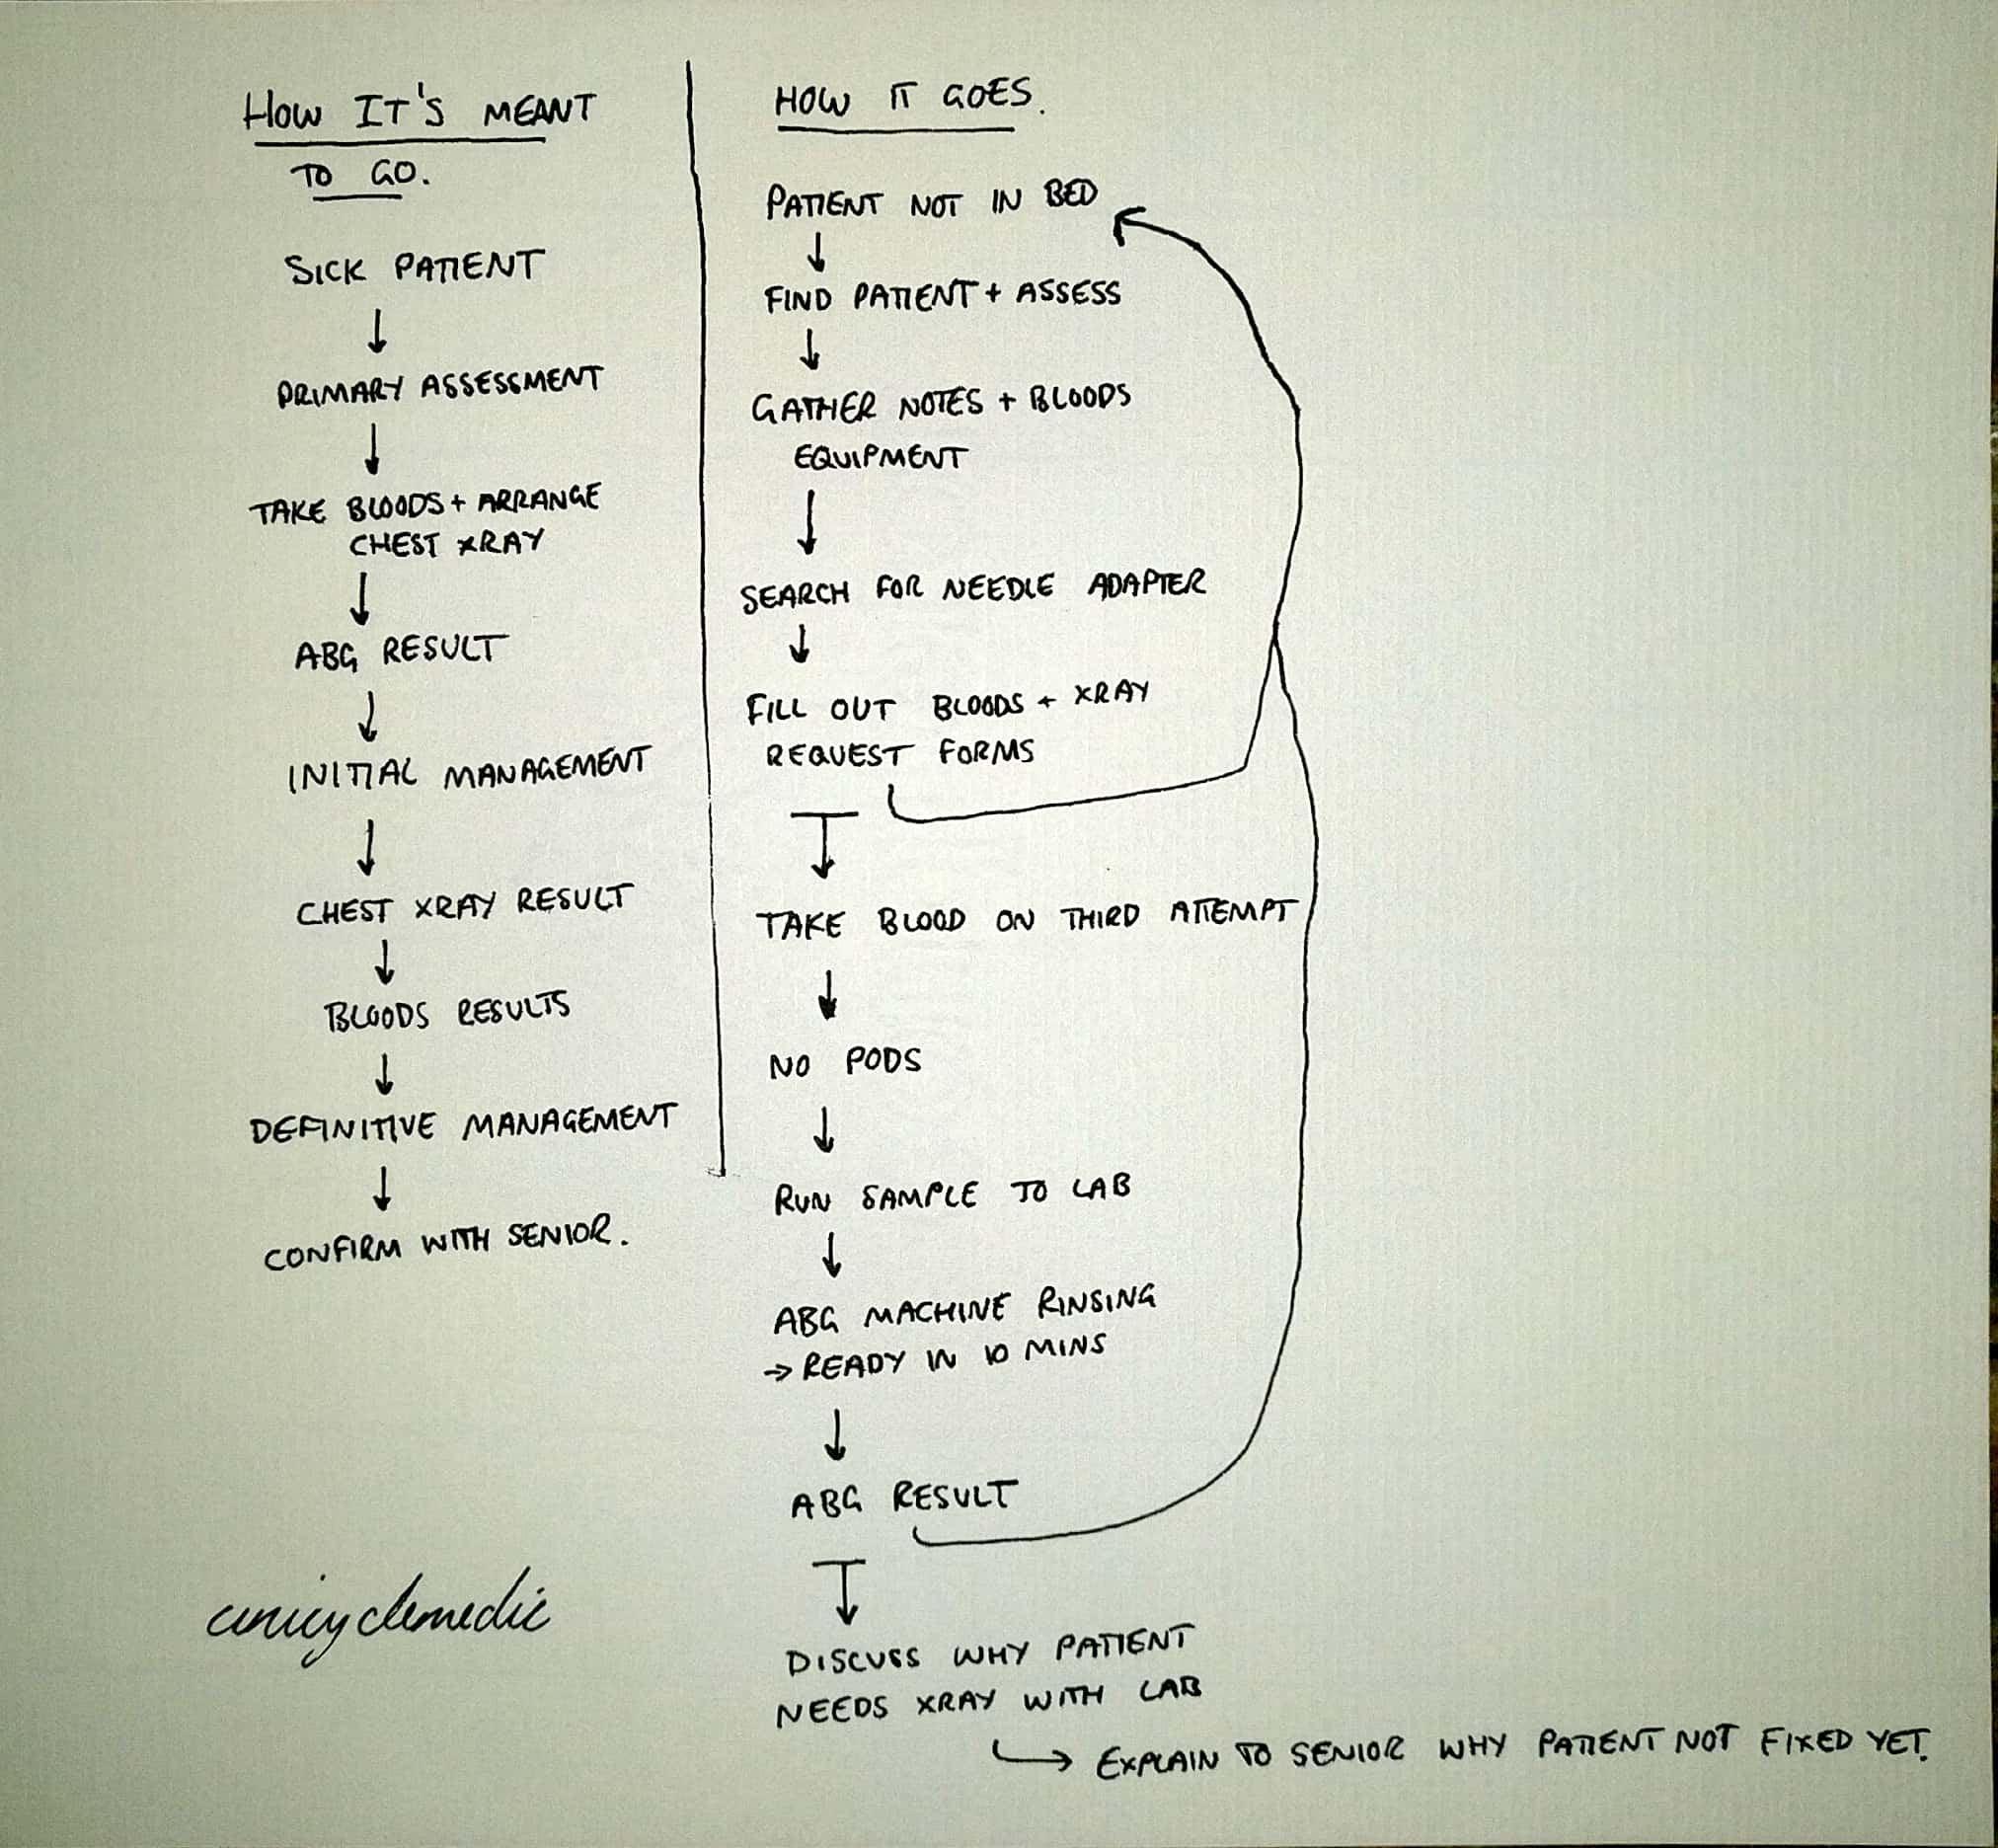 HOW IT'S MEANT
TO GO.
SICK PATIENT
PRIMARY ASSESSMENT
TAKE BLOODS + ARRANGE
CHEST XRAY
ABG RESULT
INITIAL MANAGEMENT
CHEST XRAY RESULT
BLOODS RESULTS
DEFINITIVE MANAGEMENT
CONFIRM WITH SENIOR.
HOW IT GOES.
PATIENT NOT IN BED
FIND PATIENT + ASSESS
GATHER NOTES + BLOODS
EQUIPMENT
SEARCH FOR NEEDLE ADAPTER
FILL OUT BLOODS + XRAY
REQUEST FORMS
TAKE BLOOD ON THIRD ATTEMPT
NO PODS
RUN SAMPLE TO LAB
ABG MACHINE RINSING
→ READY IN 10 MINS
ABG RESULT
DISCUSS WHY PATIENT
NEEDS XRAY WITH LAB
EXPLAIN TO SENIOR WHY PATIENT NOT FIXED YET.
unicyclemedic